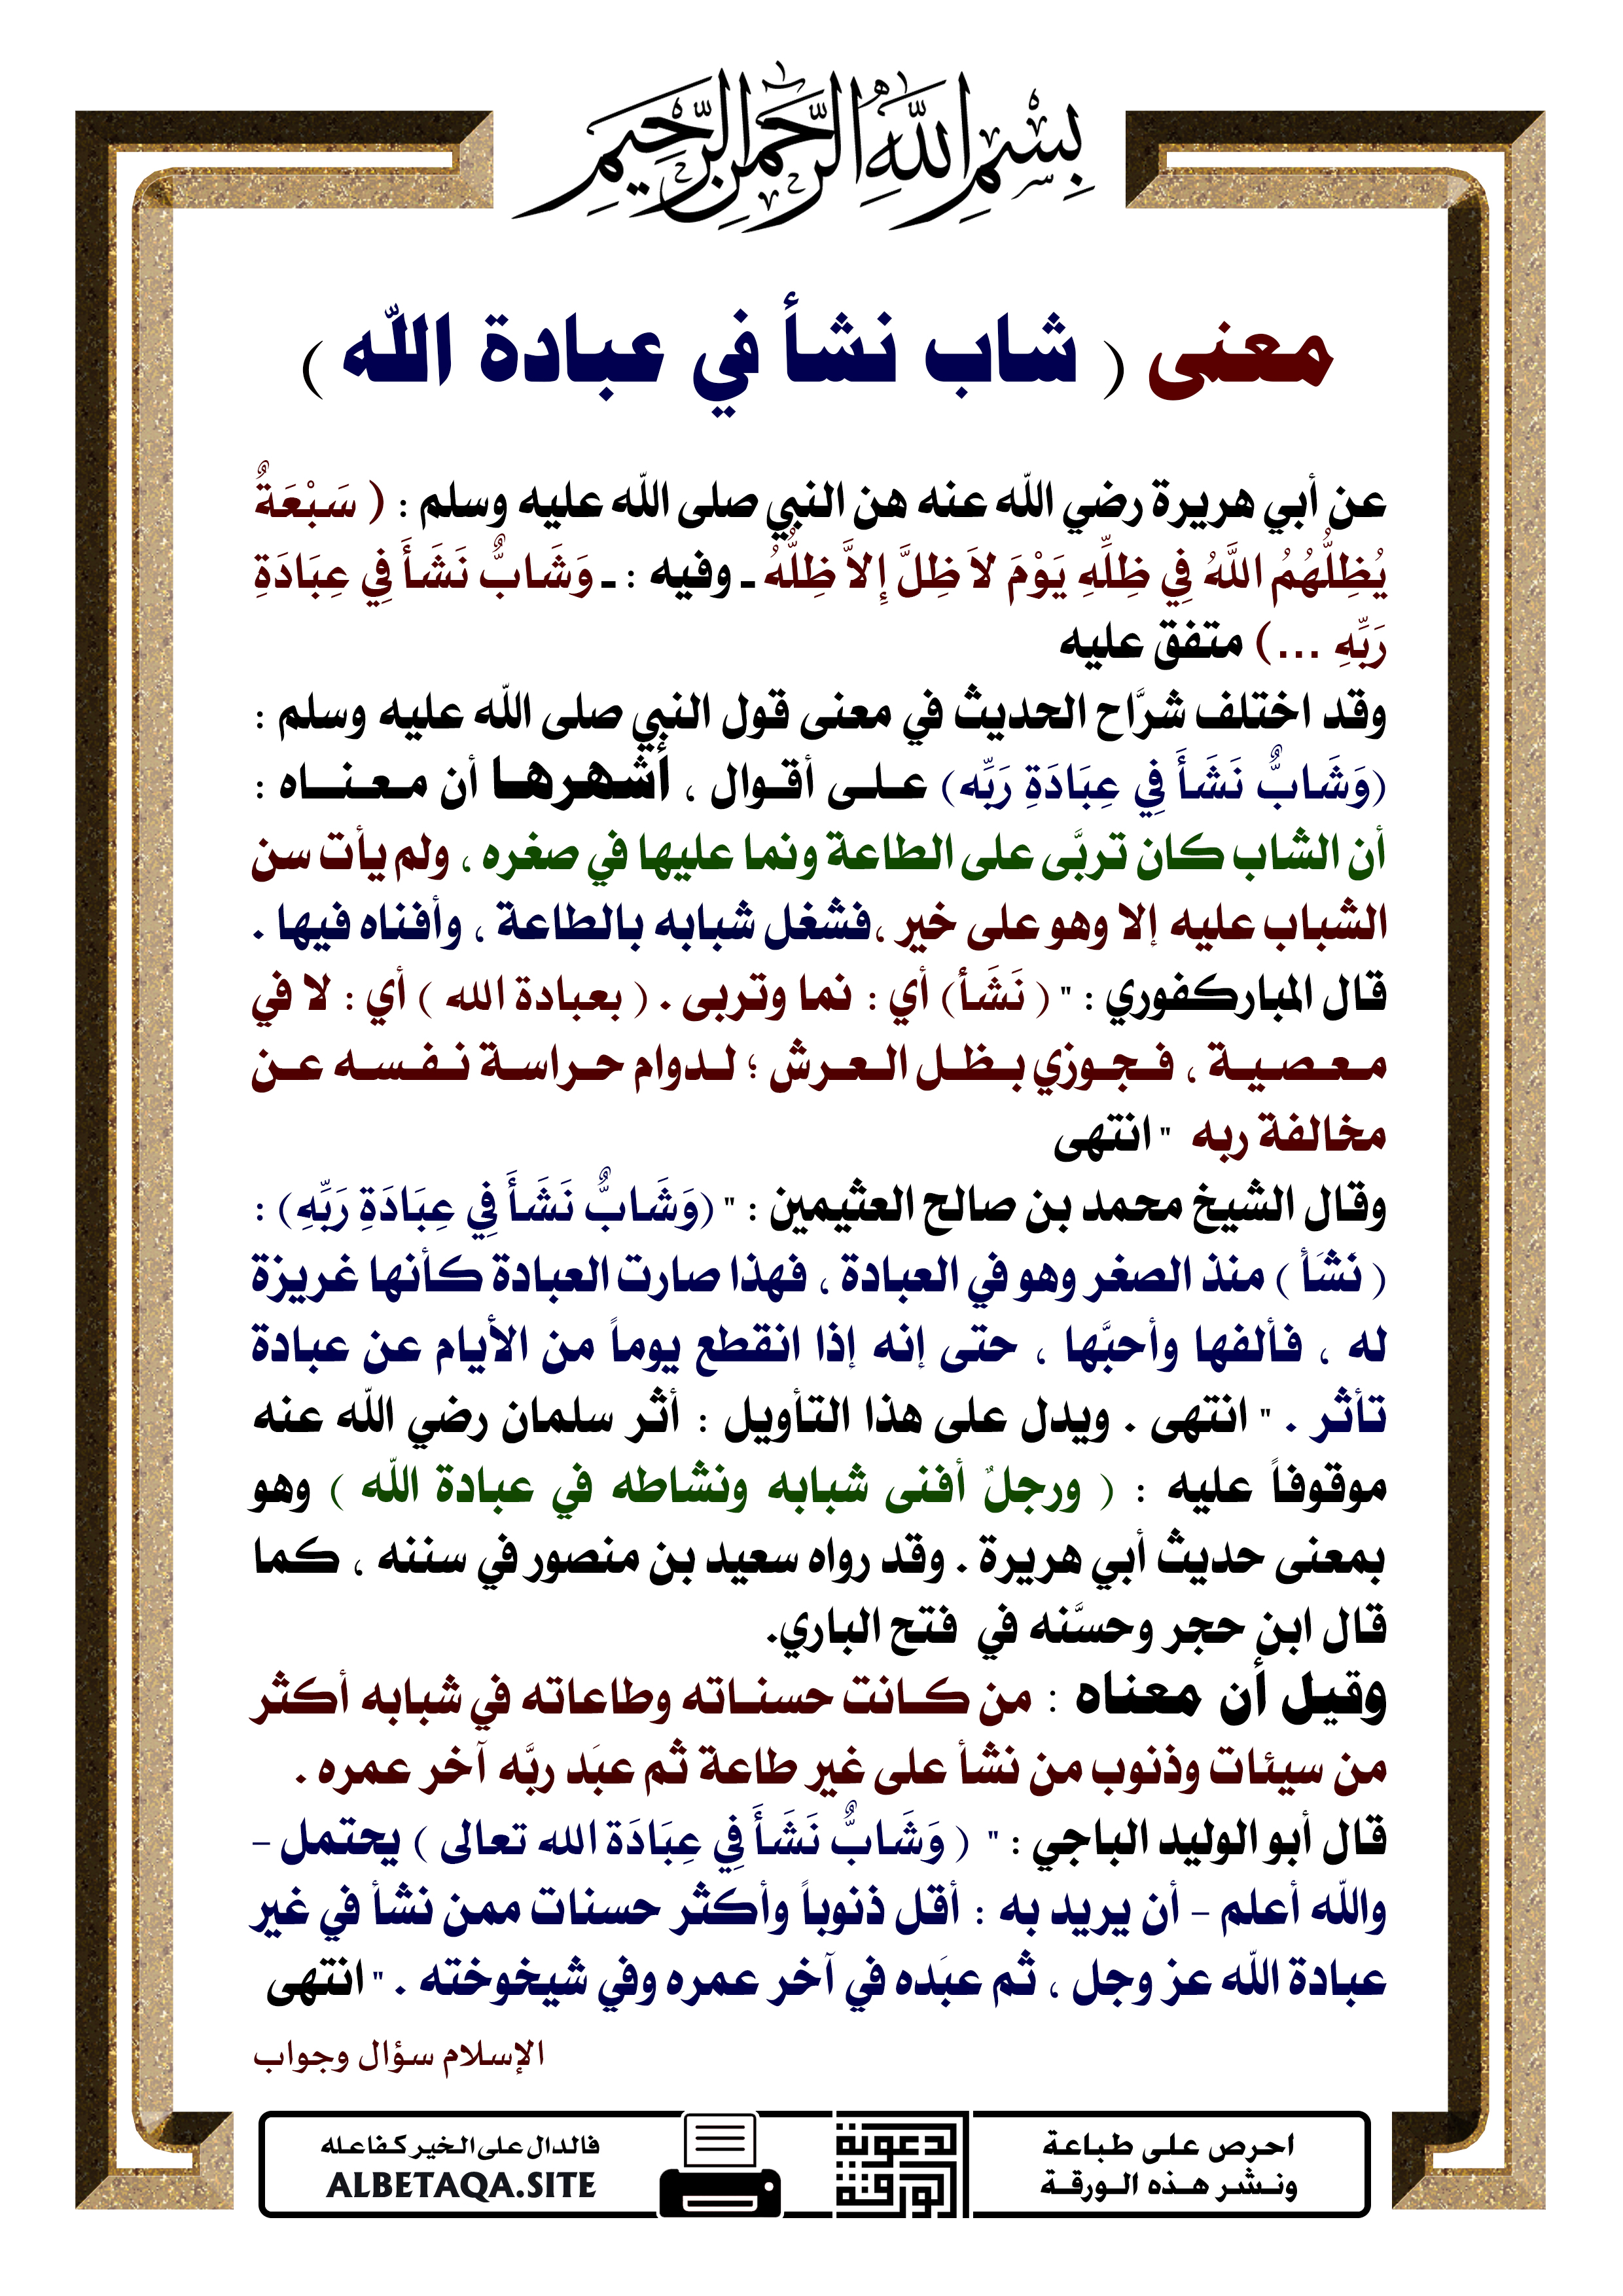 بِسْمِ اللَّهِ الرَّحْمَنِ الرَّحِيمِ
معنى ( شاب نشأ في عبادة الله )
عن أبي هريرة رضي الله عنه هن النبي صلى الله عليه وسلم : ( سَبْعَةٌ
يُظِلُّهُمُ اللَّهُ فِي ظِلِّهِ يَوْمَ لاَ ظِلَّ إِلاَّ ظِلُّهُ ـ وفيه : ـ وَشَابٌّ نَشَأَ فِي عِبَادَةِ
رَبِّهِ ...) متفق عليه
وقد اختلف شرَّاح الحديث في معنى قول النبي صلى الله عليه وسلم :
(وَشَابٌّ نَشَأَ فِي عِبَادَةِ رَبِّه) على أقوال ، أشهرها أن معناه :
أن الشاب كان تربَّى على الطاعة ونما عليها في صغره ، ولم يأت سن
الشباب عليه إلا وهو على خير ،فشغل شبابه بالطاعة ، وأفناه فيها .
قال المباركفوري : " ( نَشَأ) أي : نما وتربى . ( بعبادة الله ) أي : لا في
معصية ، فجوزي بظل العرش ؛ لدوام حراسة نفسه عن
مخالفة ربه " انتهى
وقال الشيخ محمد بن صالح العثيمين : " (وَشَابٌّ نَشَأَ فِي عِبَادَةِ رَبِّهِ) :
( نَشَأَ ) منذ الصغر وهو في العبادة ، فهذا صارت العبادة كأنها غريزة
له ، فألفها وأحبَّها ، حتى إنه إذا انقطع يوماً من الأيام عن عبادة
تأثر . " انتهى . ويدل على هذا التأويل : أثر سلمان رضي الله عنه
موقوفاً عليه : ( ورجلٌ أفنى شبابه ونشاطه في عبادة الله ) وهو
بمعنى حديث أبي هريرة . وقد رواه سعيد بن منصور في سننه ، كما
قال ابن حجر وحسَّنه في فتح الباري.
وقيل أن معناه : من كانت حسناته وطاعاته في شبابه أكثر
من سيئات وذنوب من نشأ على غير طاعة ثم عبَد ربَّه آخر عمره .
قال أبو الوليد الباجي : " ( وَشَابٌّ نَشَأَ فِي عِبَادَة الله تعالى ) يحتمل -
والله أعلم - أن يريد به : أقل ذنوباً وأكثر حسنات ممن نشأ في غير
عبادة الله عز وجل ، ثم عبَده في آخر عمره وفي شيخوخته . " انتهى
الإسلام سؤال وجواب
احرص على طباعة
ونشر هذه الورقة
الورقة
الدعوية
فالدال على الخير كفاعله
ALBETAQA.SITE